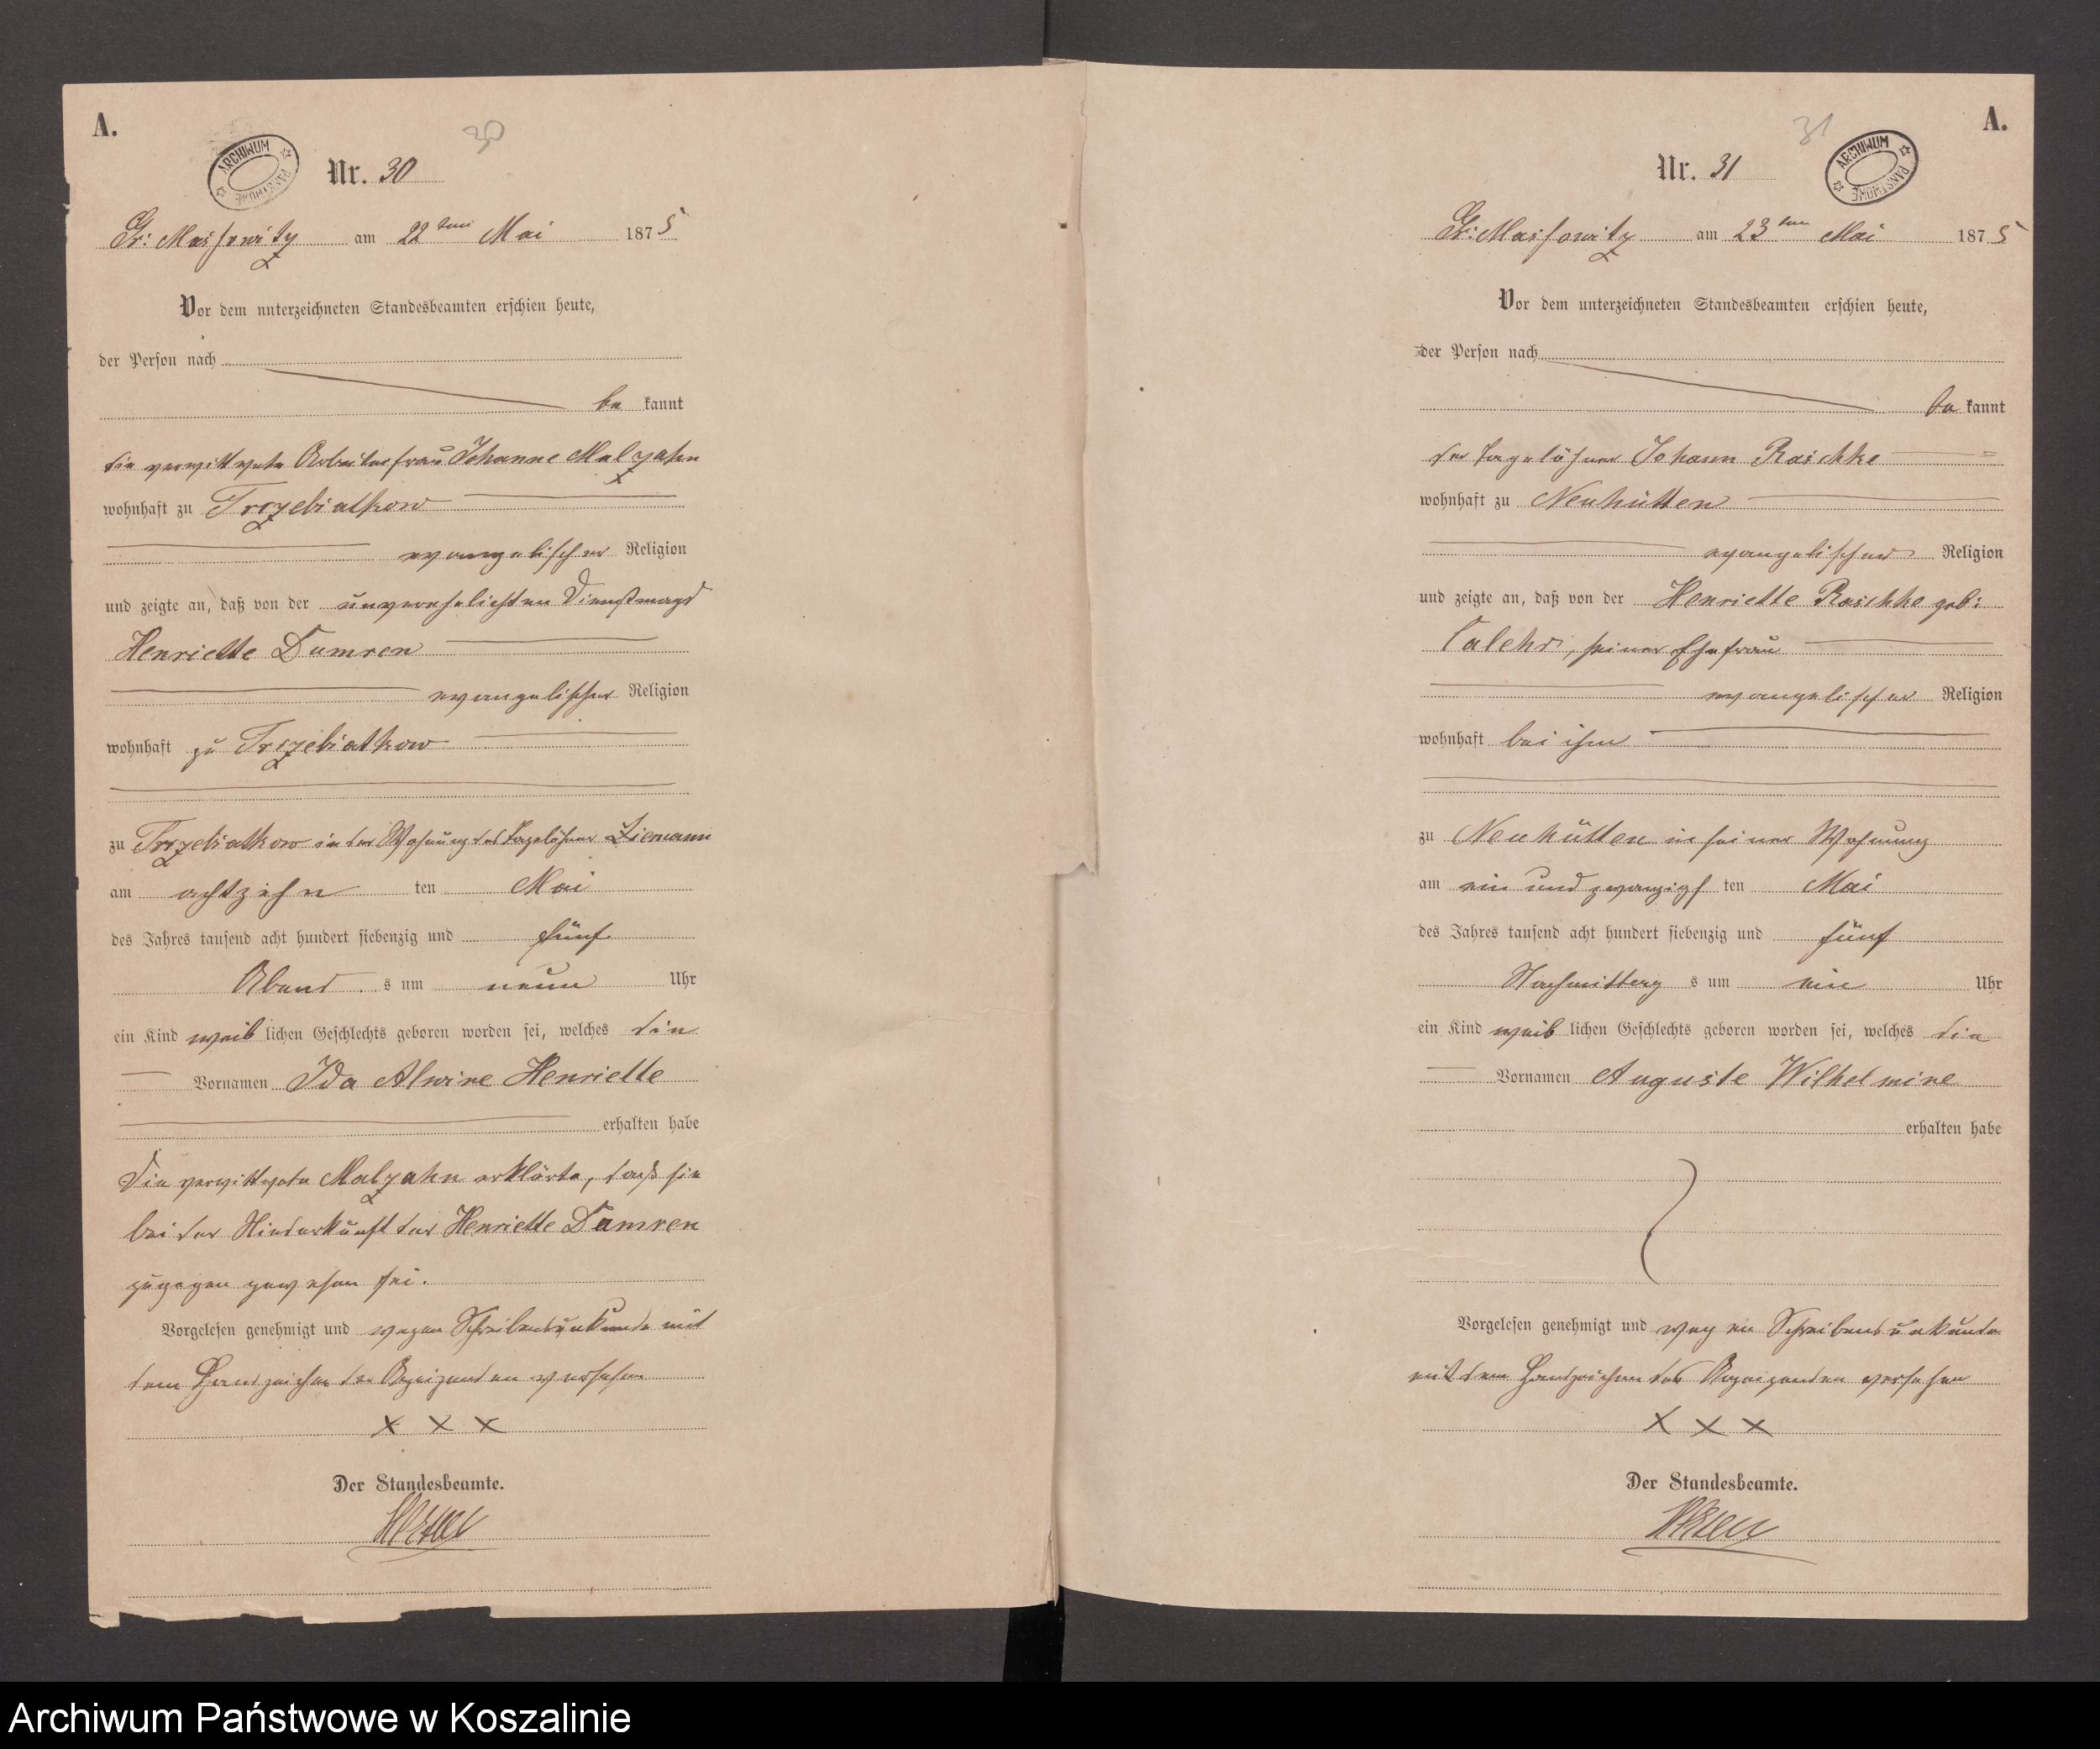 A.
30
ARCHIWUM PAŃSTWOWE
Nr. 30
Gr: Massowitz am 22ten Mai 1875
Vor dem unterzeichneten Standesbeamten erschien heute,
der Person nach
be kannt
die verwittwete Arbeiterfrau Johanne Malzahn
wohnhaft zu Trzebiatkow
evangelischer Religion
und zeigte an, daß von der unverehelichten Dienstmagd
Henriette Damren
evangelischer Religion
wohnhaft zu Trzebiatkow
zu Trzebiatkow in der Wohnung des Tagelöhner Ziemann
am achtzehn ten Mai
des Jahres tausend acht hundert siebenzig und fünf
Abend s um neun Uhr
ein Kind weib lichen Geschlechts geboren worden sei, welches die
Vornamen Ida Alwine Henriette
erhalten habe
Die verwittwete Malzahn erklärte, daß sie
bei der Niederkunft der Henriette Damren
zugegen gewesen sei.
Vorgelesen genehmigt und wegen Schreibensunkunde mit
dem Handzeichen der Anzeigenden versehen
X X X
Der Standesbeamte.
A.
31
ARCHIWUM PAŃSTWOWE
Nr. 31
Gr: Massowitz am 23ten Mai 1875
Vor dem unterzeichneten Standesbeamten erschien heute,
der Person nach
be kannt
der Tagelöhner Johann Raschke
wohnhaft zu Neuhütten
evangelischer Religion
und zeigte an, daß von der Henriette Raschke geb:
seiner Ehefrau
evangelischer Religion
wohnhaft bei ihm
zu Neuhütten in seiner Wohnung
am ein und zwanzigs ten Mai
des Jahres tausend acht hundert siebenzig und fünf
Nachmittag s um ein Uhr
ein Kind weib lichen Geschlechts geboren worden sei, welches die
Vornamen Auguste Wilhelmine
erhalten habe
Vorgelesen genehmigt und wegen Schreibensunkunde
mit dem Handzeichen des Anzeigenden versehen
X X X
Der Standesbeamte.
Archiwum Państwowe w Koszalinie